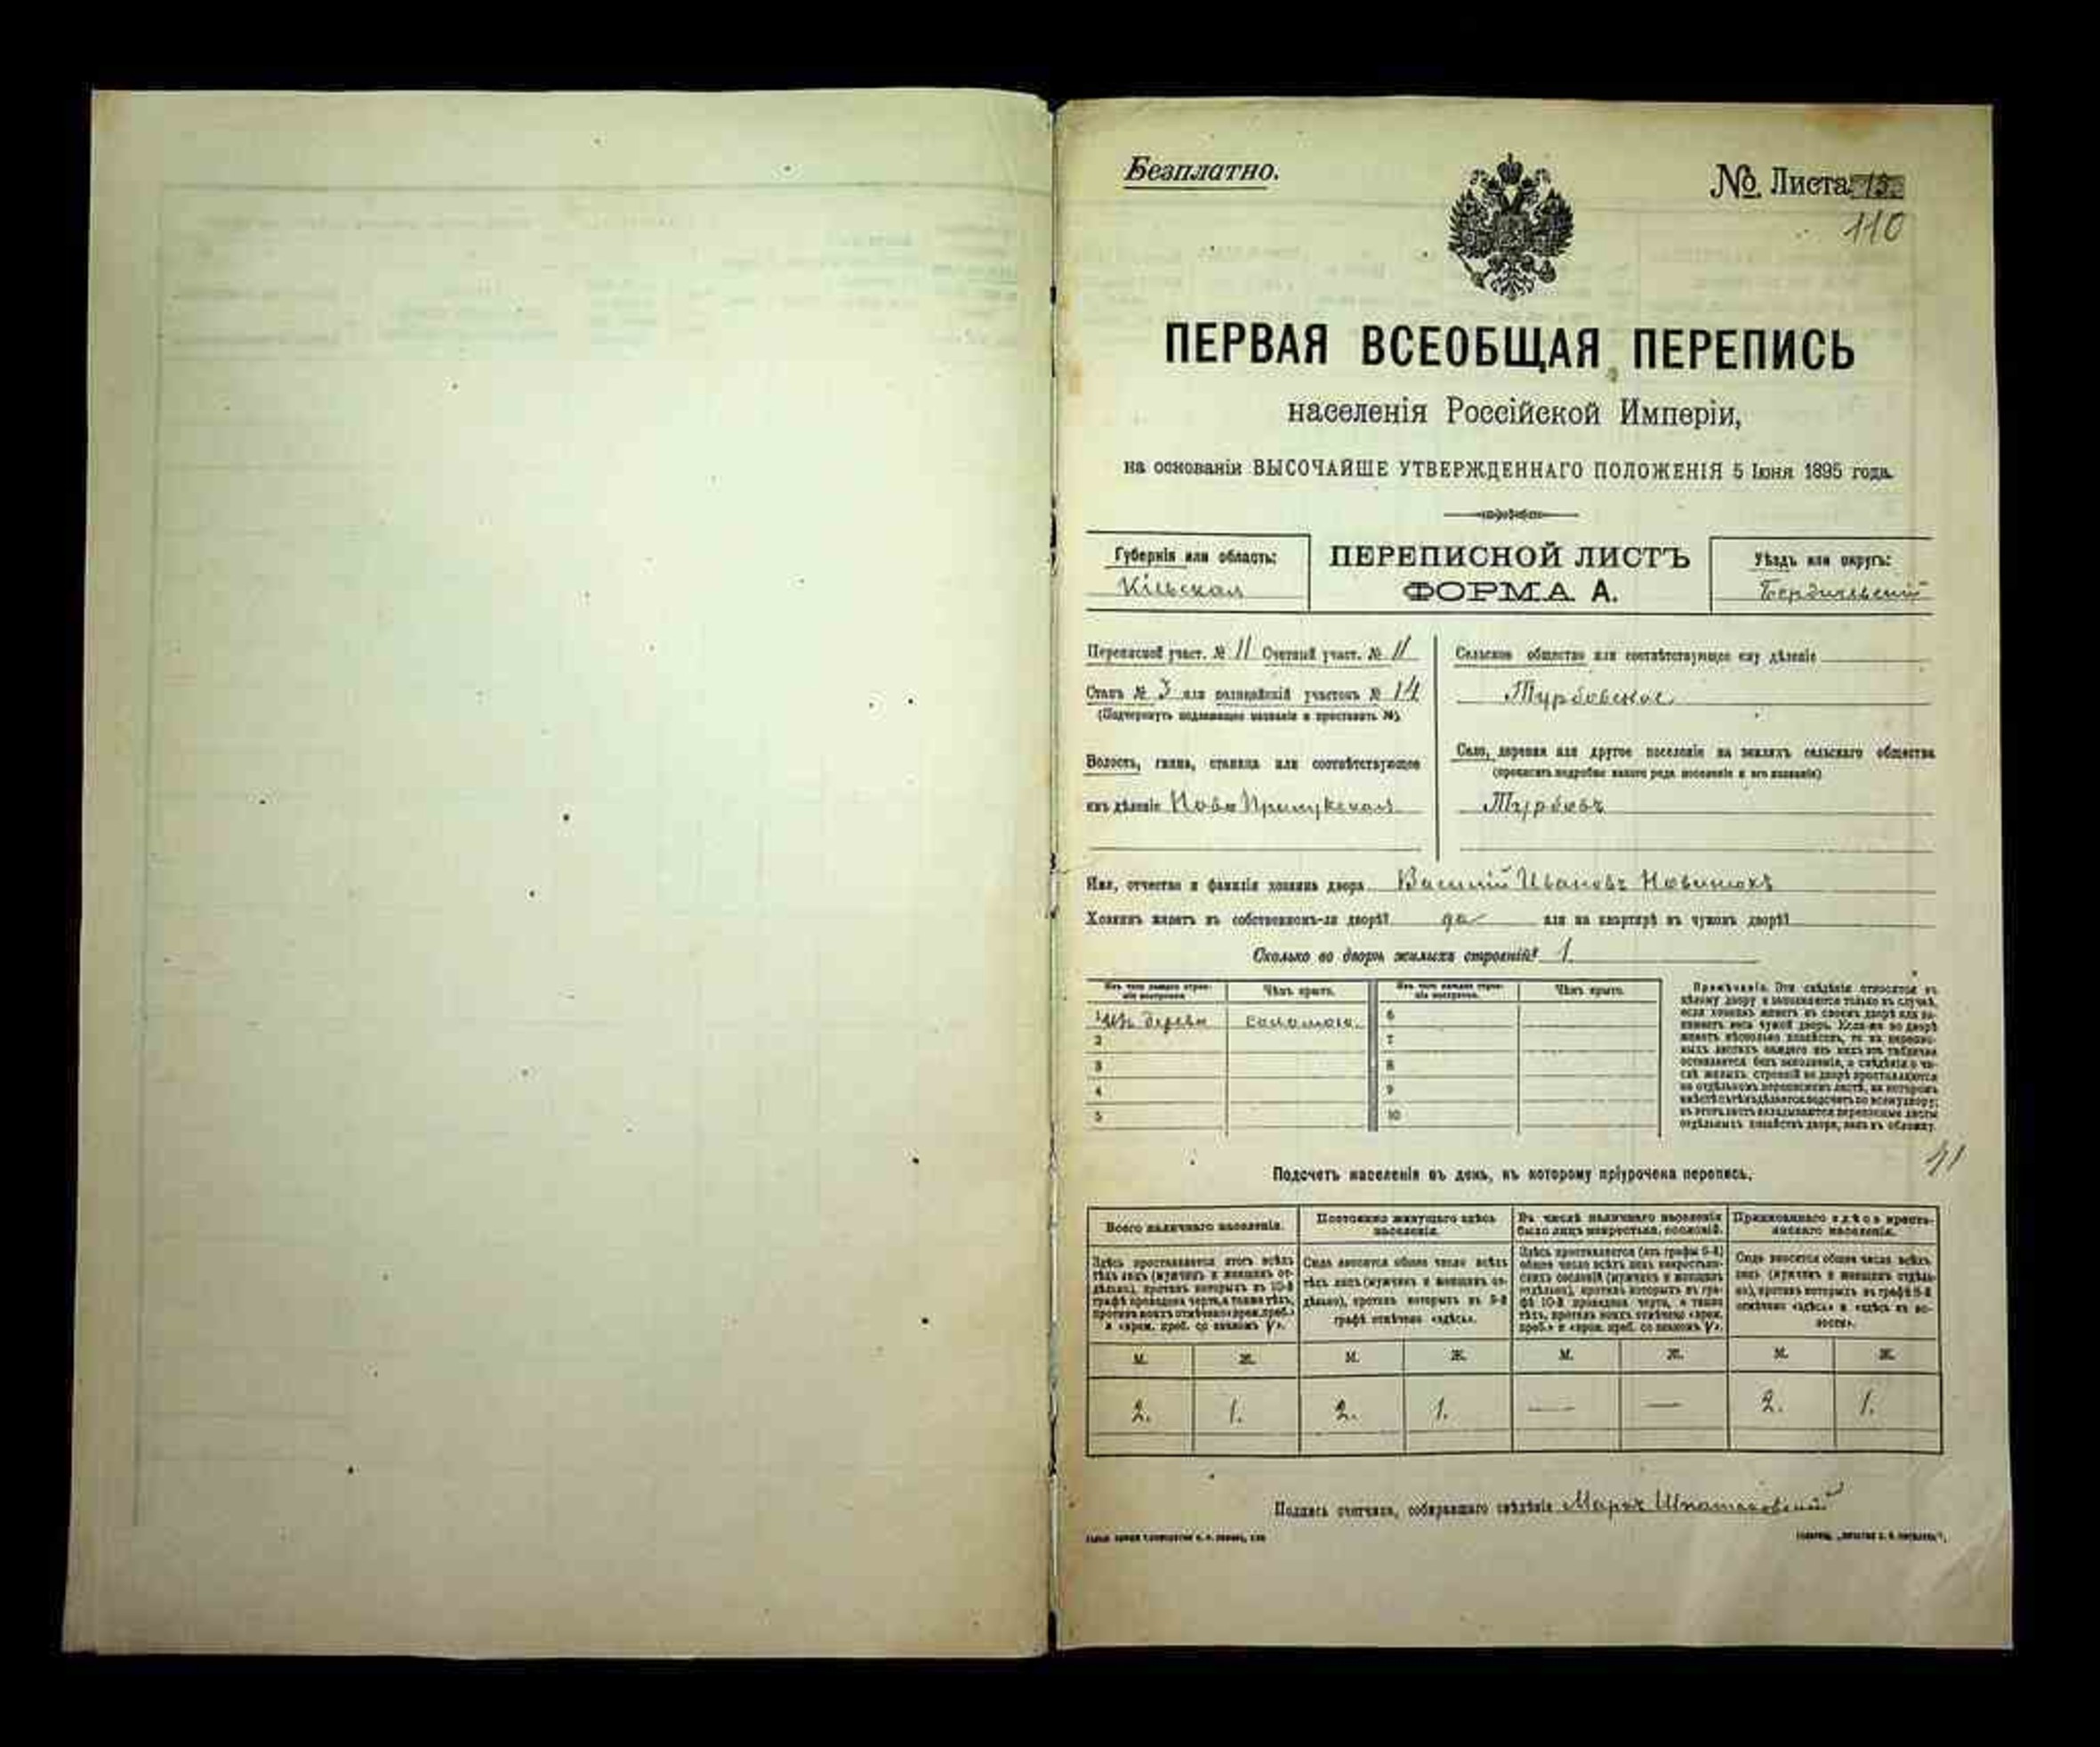 Безплатно.
№ Листа 13.
110
ПЕРВАЯ ВСЕОБЩАЯ ПЕРЕПИСЬ
населенія Россійской Имперіи,
на основаніи ВЫСОЧАЙШЕ УТВЕРЖДЕННАГО ПОЛОЖЕНІЯ 5 Іюня 1895 года.
Губернія или область:
Кіевская
ПЕРЕПИСНОЙ ЛИСТЪ
ФОРМА А.
Уѣздъ или округъ:
Бердичевскій
Переписной участ. № 11 Счетный участ. № 11
Станъ № 3 или полицейскій участокъ № 14
(Подчеркнуть подлежащее названіе и проставить №).
Волость, гмина, станица или соотвѣтствующее
имъ дѣленіе Ново Прилукская
Сельское общество или соотвѣтствующее ему дѣленіе
Турбовское
Село, деревня или другое поселеніе на земляхъ сельскаго общества
(прописать подробно какого рода поселеніе и его названіе)
Турбовъ
Имя, отчество и фамилія хозяина двора Василій Ивановъ
Хозяинъ живетъ въ собственномъ-ли дворѣ? да или на квартирѣ въ чужомъ дворѣ?
Сколько во дворѣ жилыхъ строеній? 1
Изъ чего каждое строеніе построено.
Чѣмъ крыто.
Изъ чего каждое строеніе построено.
Чѣмъ крыто.
1 Изъ дерева соломою. 6
2 7
3 8
4 9
5 10
Примѣчаніе. Эти свѣдѣнія относятся къ
цѣлому двору и заполняются только въ случаѣ,
если хозяинъ живетъ въ своемъ дворѣ или за-
нимаетъ весь чужой дворъ. Если-же во дворѣ
живетъ нѣсколько хозяйствъ, то въ перепис-
ныхъ листахъ каждаго изъ нихъ эта табличка
оставляется безъ заполненія, а свѣдѣнія о чи-
слѣ жилыхъ строеній во дворѣ проставляются
на отдѣльномъ переписномъ листѣ, на которомъ
вмѣстѣ съ тѣмъ дѣлается подсчетъ по всему двору;
въ этотъ листъ вкладываются переписные листы
отдѣльныхъ хозяйствъ двора, какъ въ обложку.
11
Подсчетъ населенія въ день, къ которому пріурочена перепись.
Всего наличнаго населенія.
Здѣсь проставляется итогъ всѣхъ
тѣхъ лицъ (мужчинъ и женщинъ от-
дѣльно), противъ которыхъ въ 10-й
графѣ проведена черта, а также тѣхъ,
противъ коихъ отмѣчено «врем. преб.»
и «врем. преб. со знакомъ V».
Постоянно живущаго здѣсь
населенія.
Сюда вносится общее число всѣхъ
тѣхъ лицъ (мужчинъ и женщинъ от-
дѣльно), противъ которыхъ въ 9-й
графѣ отмѣчено «здѣсь».
Въ числѣ наличнаго населенія
было лицъ некрестьян. сословій.
Здѣсь проставляется (изъ графы 6-й)
общее число всѣхъ лицъ некрестьян-
скихъ сословій (мужчинъ и женщинъ
отдѣльно), противъ которыхъ въ гра-
фѣ 10-й проведена черта, а также
тѣхъ, противъ коихъ отмѣчено «врем.
преб.» и «врем. преб. со знакомъ V».
Приписаннаго здѣсь кресть-
янскаго населенія.
Сюда вносится общее число всѣхъ
лицъ (мужчинъ и женщинъ отдѣль-
но), противъ которыхъ въ графѣ 8-й
отмѣчено «здѣсь» и «здѣсь въ во-
лости».
М. Ж. М. Ж. М. Ж. М. Ж.
2. 1. 2. 1. — — 2. 1.
Подпись счетчика, собиравшаго свѣдѣнія Маркъ